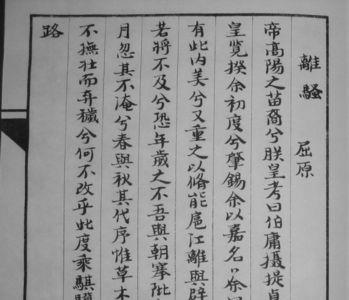 離騷 屈原
帝高陽之苗裔兮朕皇考曰伯庸攝提貞
皇览揆余初度兮肇錫余以嘉名
有此内美兮又重之以脩能扈江離與辟
若將不及兮恐年歲之不吾與朝搴阰
月忽其不淹兮春與秋其代序惟草木
不撫壯而弃穢兮何不改乎此度乘騏驥
路